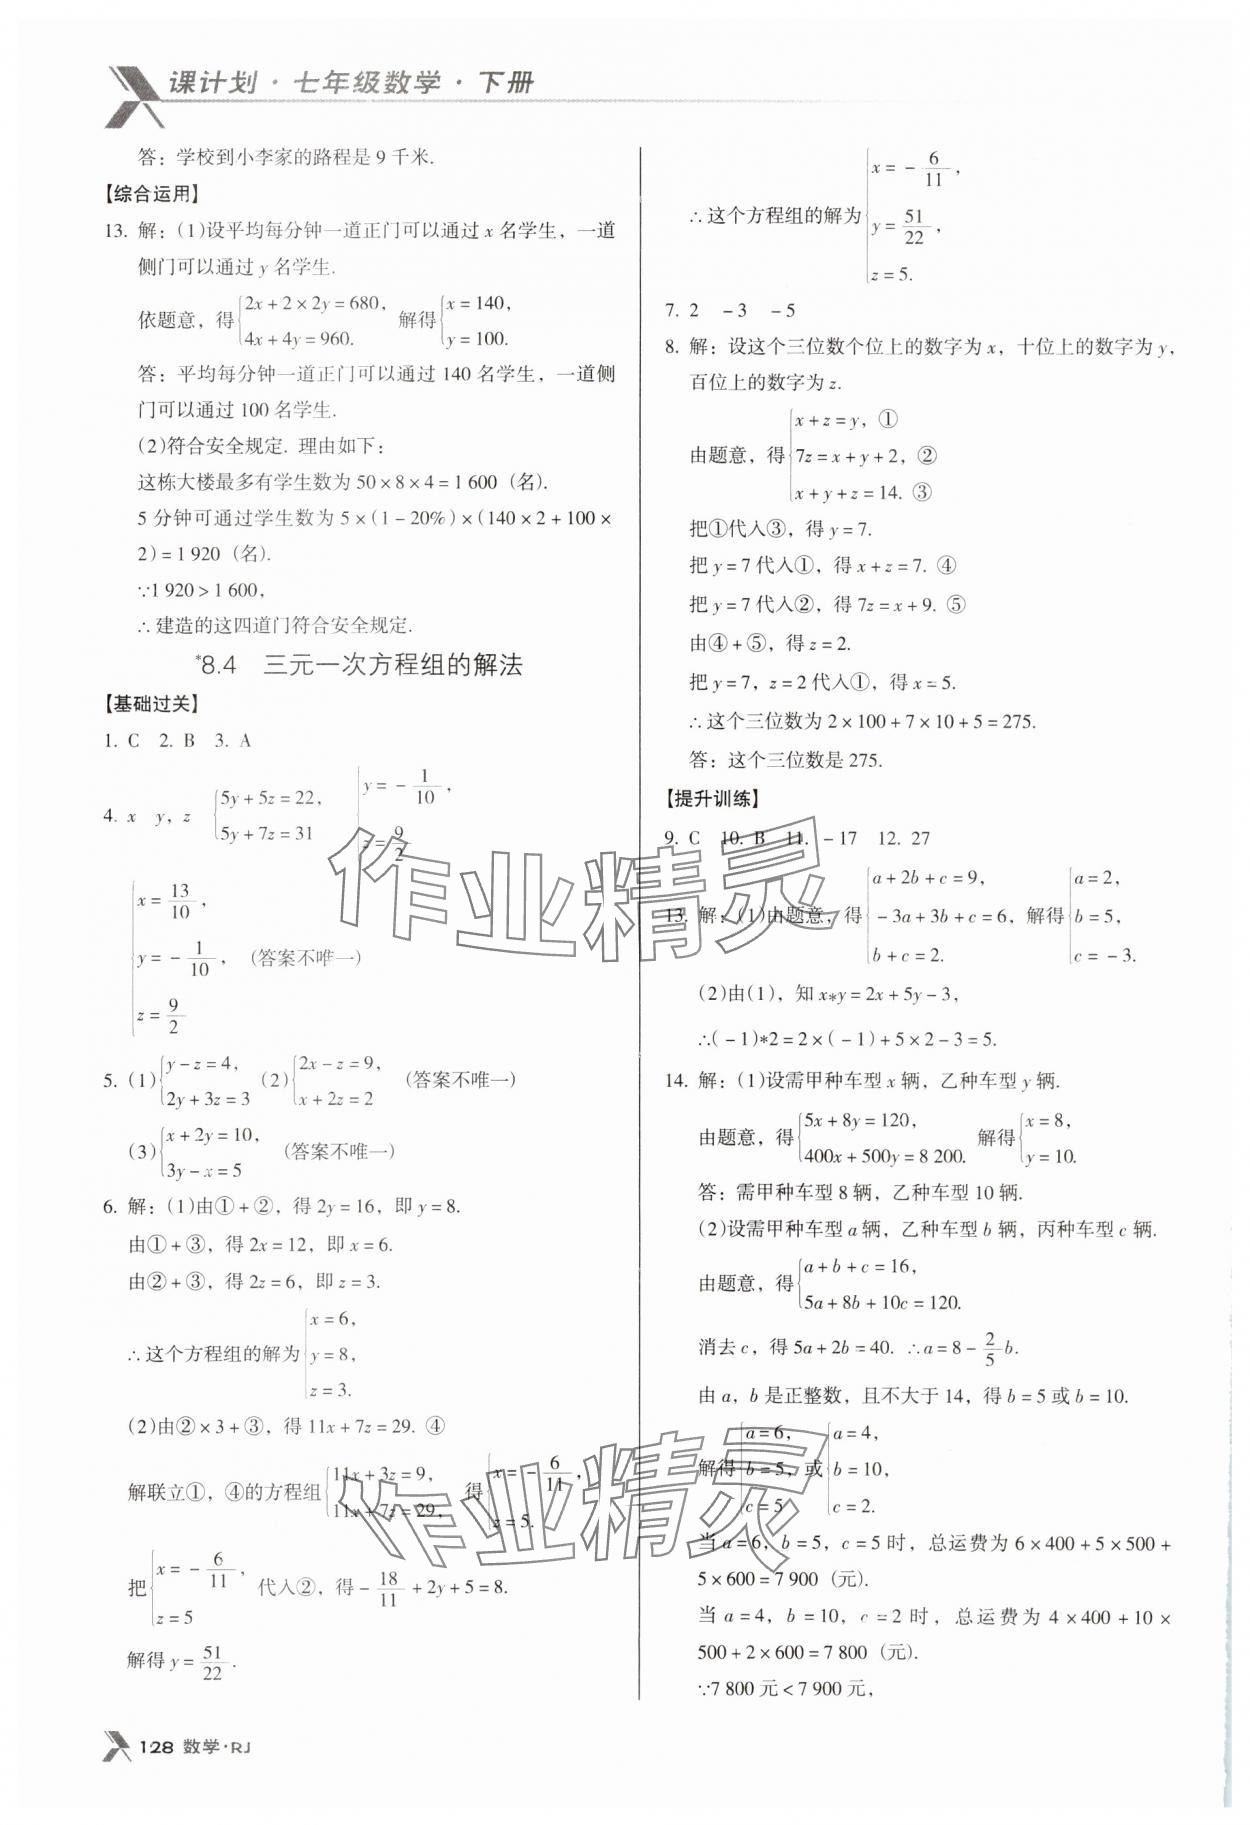 课计划·七年级数学·下册
答：学校到小李家的路程是 9 千米.
【综合运用】
13. 解：(1)设平均每分钟一道正门可以通过 x 名学生，一道
侧门可以通过 y 名学生.
依题意，得{2x+2×2y=680, 4x+4y=960. 解得{x=140, y=100.
答：平均每分钟一道正门可以通过 140 名学生，一道侧
门可以通过 100 名学生.
(2)符合安全规定. 理由如下：
这栋大楼最多有学生数为 50×8×4=1 600（名）.
5 分钟可通过学生数为 5×(1-20%)×(140×2+100×
2)=1 920（名）.
∵1 920>1 600，
∴建造的这四道门符合安全规定.
*8.4 三元一次方程组的解法
【基础过关】
1. C 2. B 3. A
4. x y，z {5y+5z=22, 5y+7z=31 {y=-1/10, z=9/2
{x=13/10, y=-1/10, z=9/2 （答案不唯一）
5. (1){y-z=4, 2y+3z=3 (2){2x-z=9, x+2z=2 （答案不唯一）
(3){x+2y=10, 3y-x=5 （答案不唯一）
6. 解：(1)由①+②，得 2y=16，即 y=8.
由①+③，得 2x=12，即 x=6.
由②+③，得 2z=6，即 z=3.
∴这个方程组的解为{x=6, y=8, z=3.
(2)由②×3+③，得 11x+7z=29. ④
解联立①，④的方程组{11x+3z=9, 11x+7z=29, 得{x=-6/11, z=5.
把{x=-6/11, z=5 代入②，得-18/11+2y+5=8.
解得 y=51/22.
∴这个方程组的解为{x=-6/11, y=51/22, z=5.
7. 2 -3 -5
8. 解：设这个三位数个位上的数字为 x，十位上的数字为 y，
百位上的数字为 z.
由题意，得{x+z=y，① 7z=x+y+2，② x+y+z=14. ③
把①代入③，得 y=7.
把 y=7 代入①，得 x+z=7. ④
把 y=7 代入②，得 7z=x+9. ⑤
由④+⑤，得 z=2.
把 y=7，z=2 代入①，得 x=5.
∴这个三位数为 2×100+7×10+5=275.
答：这个三位数是 275.
【提升训练】
9. C 10. B 11. -17 12. 27
13. 解：(1)由题意，得{a+2b+c=9, -3a+3b+c=6, b+c=2. 解得{a=2, b=5, c=-3.
(2)由(1)，知 x*y=2x+5y-3，
∴(-1)*2=2×(-1)+5×2-3=5.
14. 解：(1)设需甲种车型 x 辆，乙种车型 y 辆.
由题意，得{5x+8y=120, 400x+500y=8 200. 解得{x=8, y=10.
答：需甲种车型 8 辆，乙种车型 10 辆.
(2)设需甲种车型 a 辆，乙种车型 b 辆，丙种车型 c 辆.
由题意，得{a+b+c=16, 5a+8b+10c=120.
消去 c，得 5a+2b=40. ∴a=8-2/5b.
由 a，b 是正整数，且不大于 14，得 b=5 或 b=10.
解得{a=6, b=5, c=5 或{a=4, b=10, c=2.
当 a=6，b=5，c=5 时，总运费为 6×400+5×500+
5×600=7 900（元）.
当 a=4，b=10，c=2 时，总运费为 4×400+10×
500+2×600=7 800（元）.
∵7 800 元<7 900 元，
作业精灵
作业精灵
128 数学·RJ